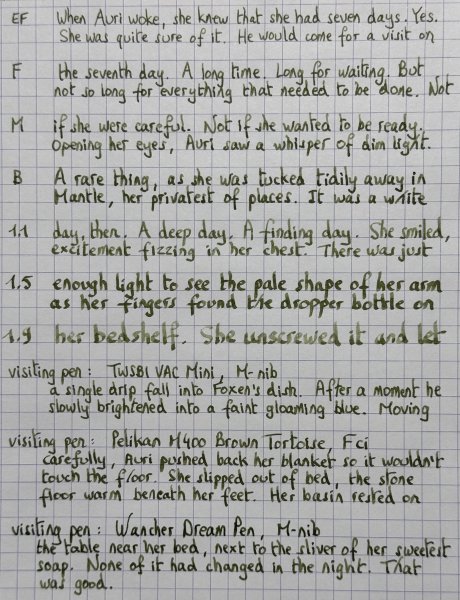 EF When Auri woke, she knew that she had seven days. Yes.
She was quite sure of it. He would come for a visit on
F the seventh day. A long time. Long for waiting. But
not so long for everything that needed to be done. Not
M if she were careful. Not if she wanted to be ready.
Opening her eyes, Auri saw a whisper of dim light.
B A rare thing, as she was tucked tidily away in
Mantle, her privatest of places. It was a white
1.1 day, then. A deep day. A finding day. She smiled,
excitement fizzing in her chest. There was just
1.5 enough light to see the pale shape of her arm
as her fingers found the dropper bottle on
1.9 her bedshelf. She unscrewed it and let
visiting pen: TWSBI VAC Mini, M-nib
a single drip fall into Foxen's dish. After a moment he
slowly brightened into a faint gloaming blue. Moving
visiting pen: Pelikan M400 Brown Tortoise, F ci
carefully, Auri pushed back her blanket so it wouldn't
touch the floor. She slipped out of bed, the stone
floor warm beneath her feet. Her basin rested on
visiting pen: Wancher Dream Pen, M-nib
the table near her bed, next to the sliver of her sweetest
soap. None of it had changed in the night. That
was good.